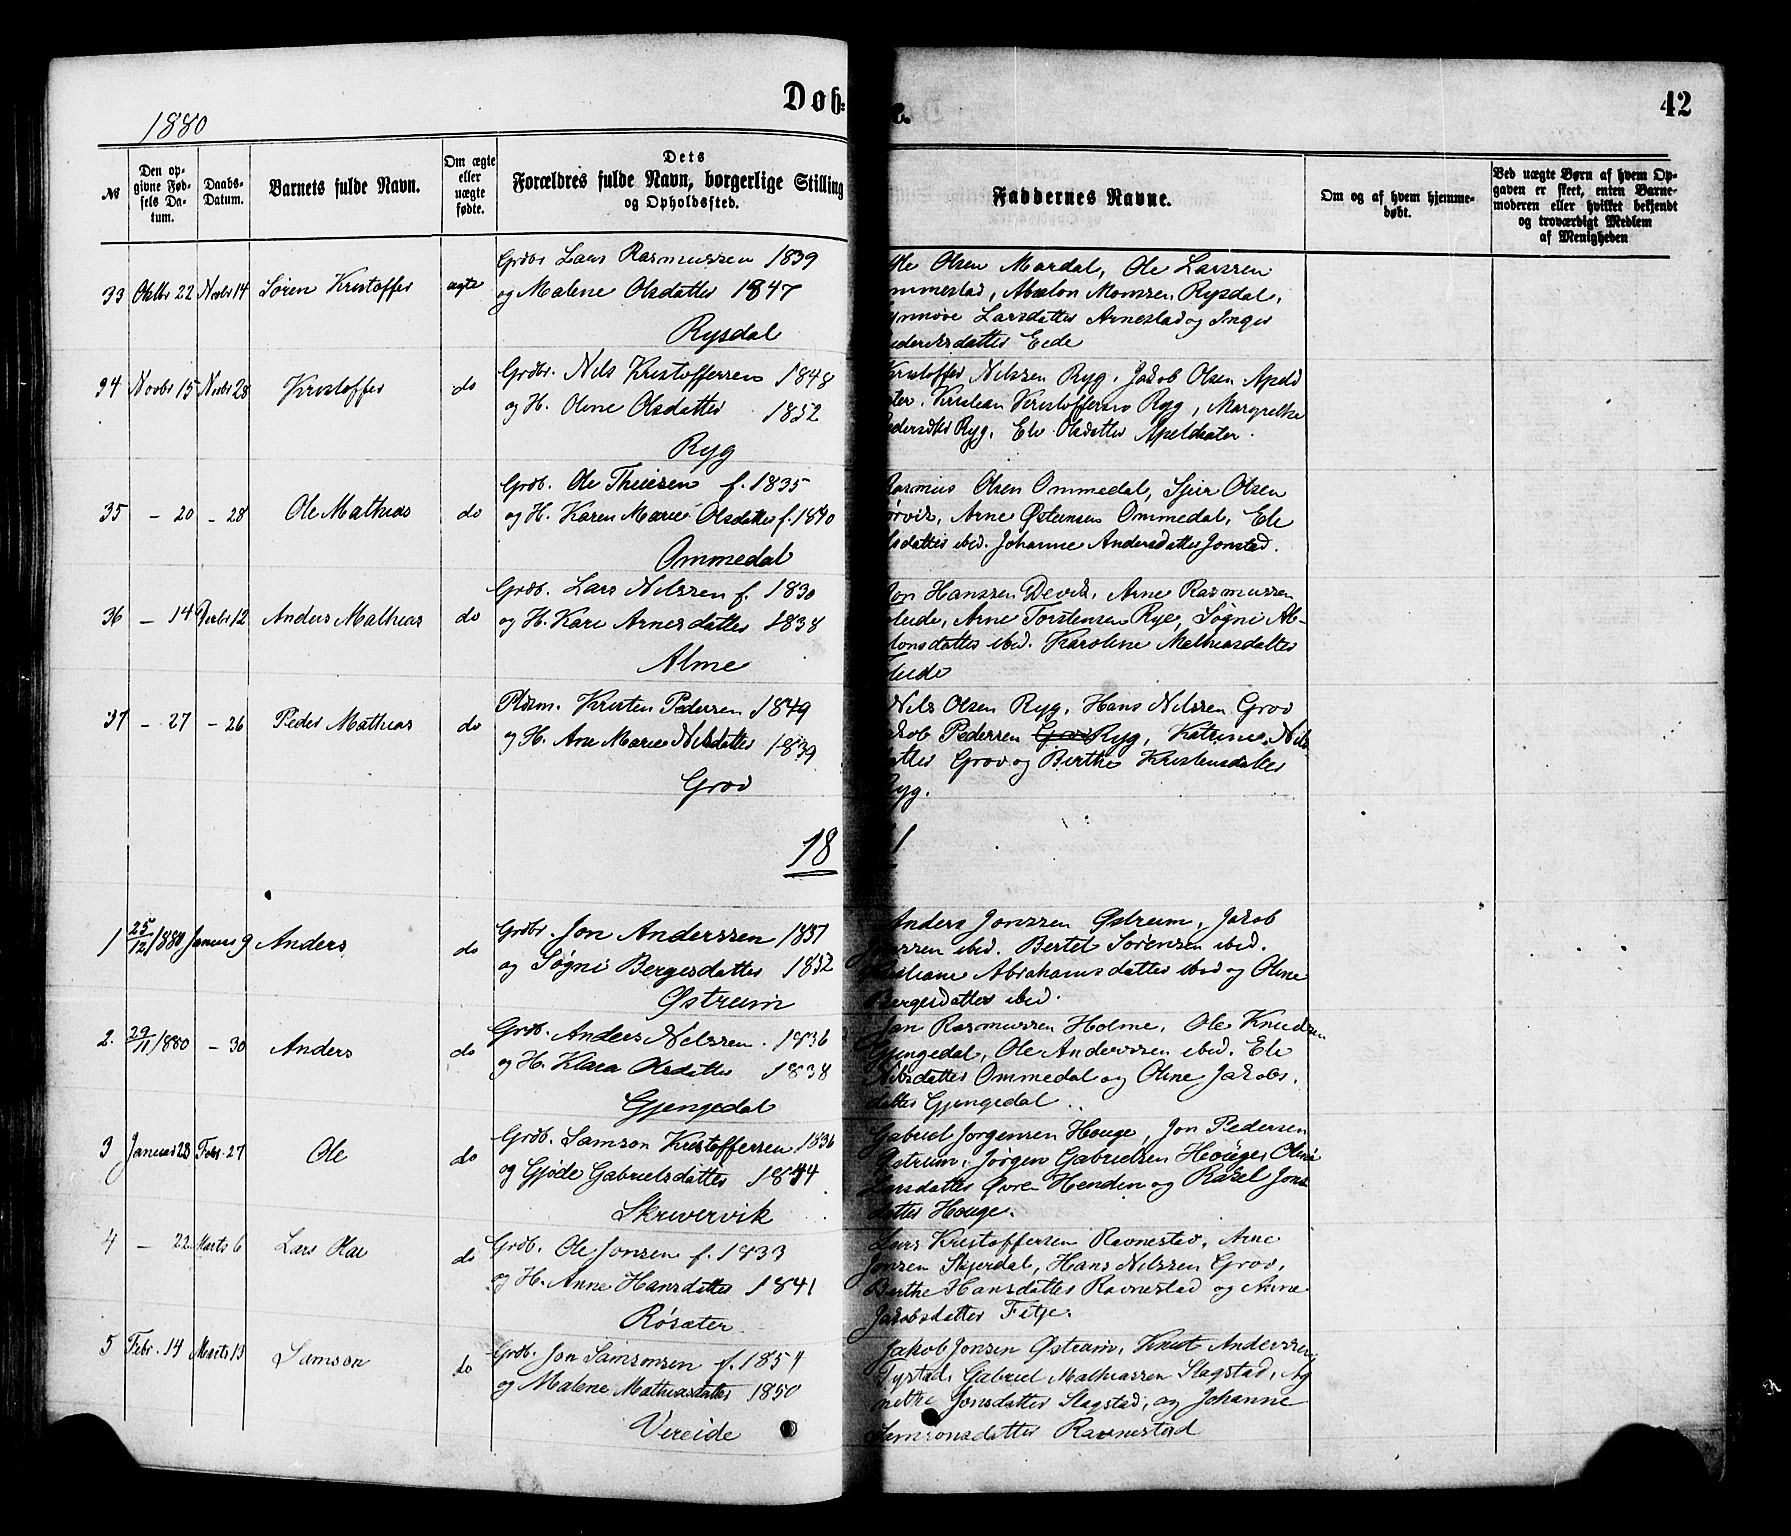 1880
Døb=
e.
42
№
Den op-
givne Fød-
sels Da-
tum.
Daabs-
Datum.
Barnets fulde Navn.
Om ægte
eller
uægte
fødte.
Dets
Forældres fulde Navn, borgerlige Stilling
og Opholdssted.
Faddernes Navne.
Om og af hvem hjemme-
døbt.
Ved uægte Børn af hvem Op-
gaven er skeet, enten Barne-
moderen eller hvilket bekjendt
og troværdigt Medlem
af Menigheden
33 Oktbr 22 Novbr 14 Søren Kristoffer ægte
Grdbr Lars Rasmussen 1839
og Malene Olsdatter 1847
Rysdal
Ole Olsen Mardal, Ole Larssen
mmestad, Absalon Monssen Rysdal,
ynnøve Larsdatter Arnestad og Inger
ederiksdatter Eide
34 Novbr 15 Novbr 28 Kristoffer do
Grdbr. Nils Kristoffersen 1848
og H. Oline Olsdatter 1852
Ryg
Kristoffer Nilssen Ryg, Jakob Olsen Apeld
ter, Kristian Kristoffersen Ryg, Margrethe
Pedersdtr Ryg, Eli Olsdatter Apeldsæter.
35 - 20 - 28 Ole Mathias do
Grdb. Ole Theiesen f. 1835
og H. Karen Marie Olsdatter f. 1840
Ommedal
Rasmus Olsen Ommedal, Sjur Olsen
ørvik, Arne Østensen Ommedal, Eli
lsdatter ibid. Johanne Andersdatter Jonstad.
36 - 14 Decbr 12 Anders Mathias do
Grdb. Lars Nilssen f. 1830
og H. Kari Arnesdatter 1838
Alme
Jon Hanssen Devik, Arne Rasmussen
leide, Arne Torstensen Rye, Søgni Ab-
lonsdatter ibid. Karoline Mathiasdatter
leide
37 - 27 - 26 Peder Mathias do
Pldsm. Kristen Pedersen 1849
og H. Ane Marie Nilsdatter 1839
Grov
Nils Olsen Ryg, Hans Nilssen Grov
akob Pedersen Grov Ryg, Katrine Nils
datter Grov og Berthe Kristensdatter
Ryg.
18
81
1 25/12 1880 Januar 9 Anders do
Grdbr. Jon Anderssen 1851
og Søgni Bergesdatter 1852
Østreim
Anders Jonssen Østreim, Jakob
Jonssen ibid. Bertel Sørensen ibid.
Kristiane Abrahamsdatter ibid og Oline
Bergesdatter ibid.
2. 29/11 1880 - 30 Anders do
Grdb. Anders Nilssen 1836
og H. Klara Olsdatter 1838
Gjengedal
Jan Rasmussen Holme, Ole Knudsen
Gjengedal, Ole Anderssen ibid. Eli
Nilsdatter Ommedal og Oline Jakobs.
datter Gjengedal
3 Januar 28 Febr. 27 Ole do
Grdb. Samson Kristoffersen 1836
og Gjøde Gabrielsdatter 1844
Skrivervik
Gabriel Jørgensen Houge, Jon Pedersen
Østrum, Jørgen Gabrielsen Houge, Oline
Larsdatter Øvre Henden og Rakel Jons
datter Houge.
4 - 22 Marts 6 Lars Olai do
Grdb. Ole Jonsen f. 1833
og H. Anne Hansdatter 1841
Røsæter
Lars Kristoffersen Ravnestad, Arne
Jonsen Skjerdal, Hans Nilssen Grov,
Berthe Hansdatter Ravnestad og Anne
Jakobsdatter Fitje.
5 Febr. 14 Marts 13 Samson do
Grdb. Jon Samsonsen f. 1854
og Malene Mathiasdatter 1850
Vereide
Jakob Jonsen Østraim, Knut Anderssen
Tystad, Gabriel Mathiassen Slagstad, Ag
nethe Jonsdatter Slagstad, og Johanne
Samsonsdatter Ravnestad